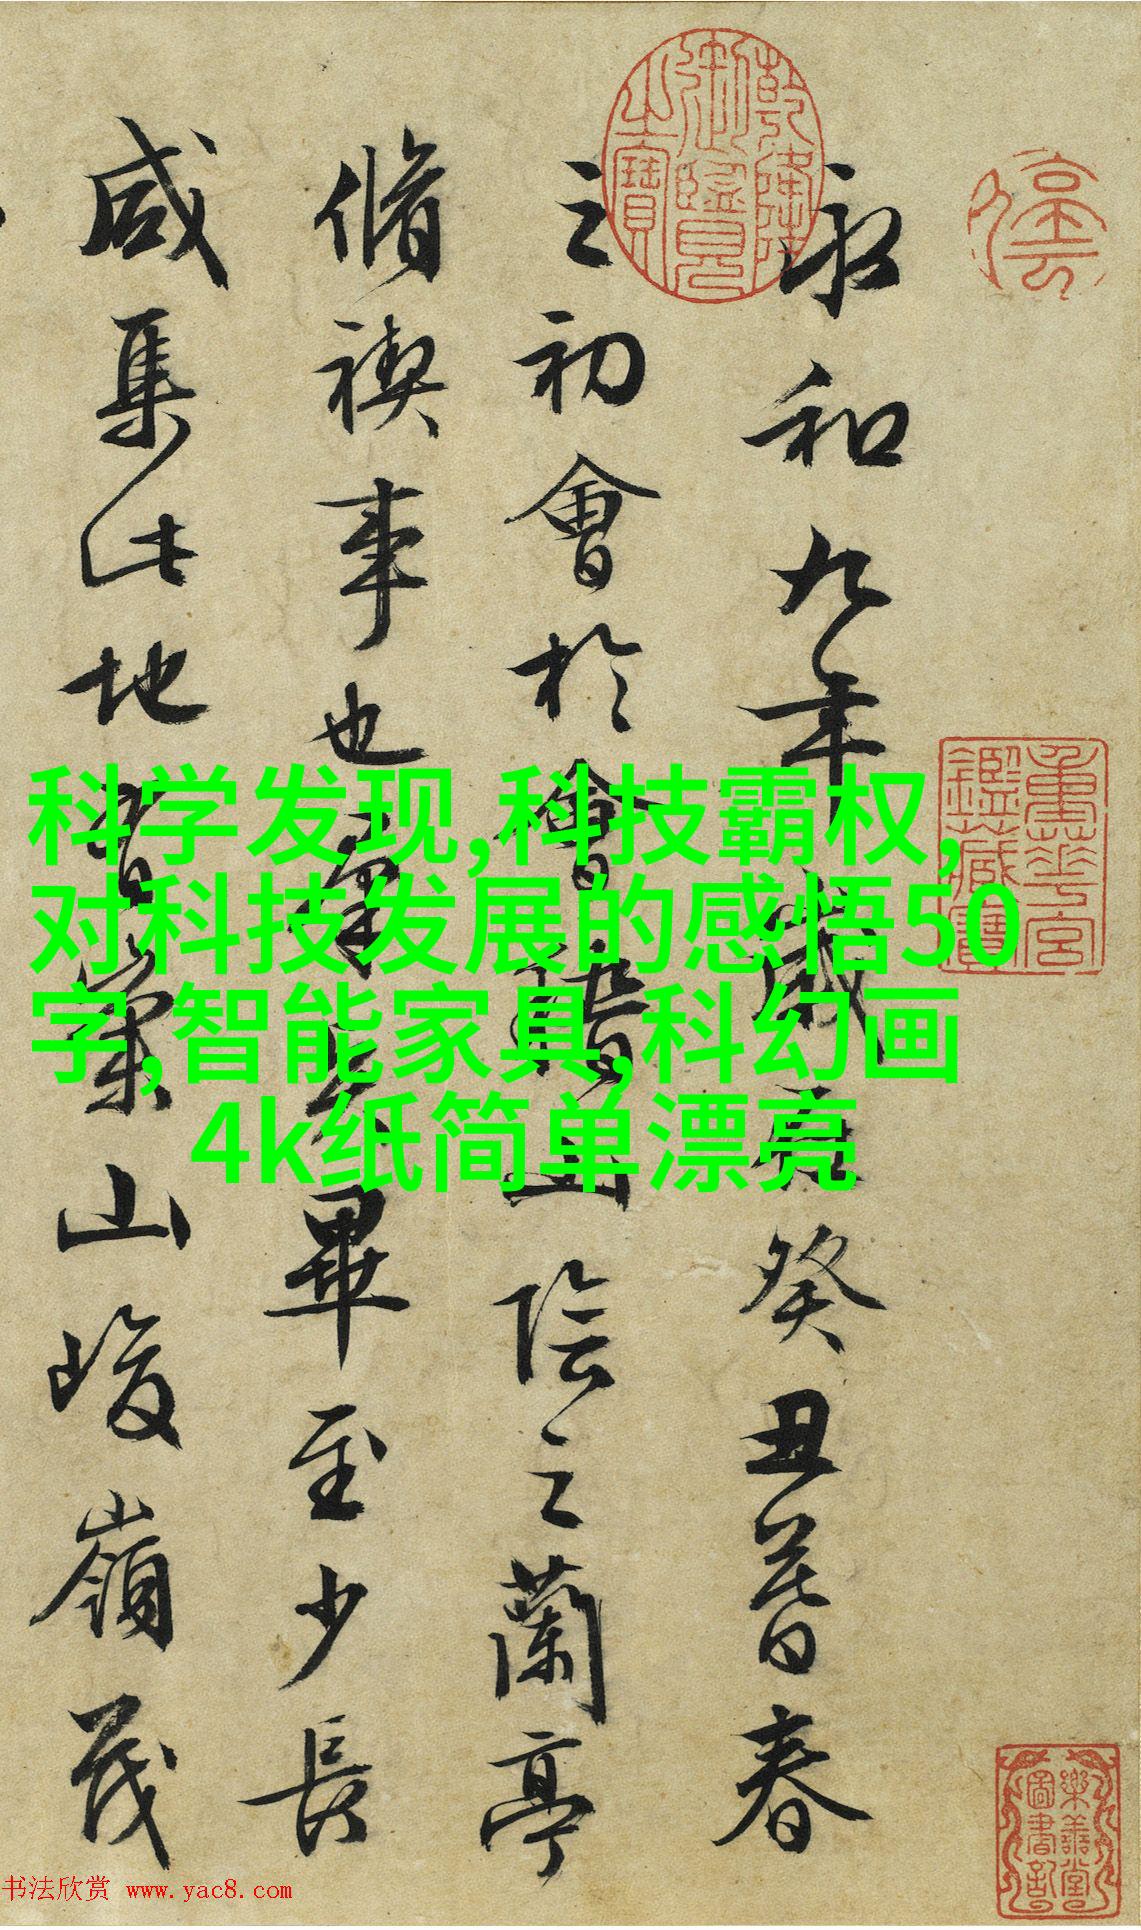 乾隆御覽之寶
永和九年歲在癸丑暮春
之初會於會稽山陰之蘭亭
脩禊事也羣賢畢至少長
咸集此地有崇山峻嶺茂
重華宮鑑藏寶
樂善堂圖書記
科学发现,科技霸权,
对科技发展的感悟50
字,智能家具,科幻画
4k纸简单漂亮
书法欣赏 www.yac8.com